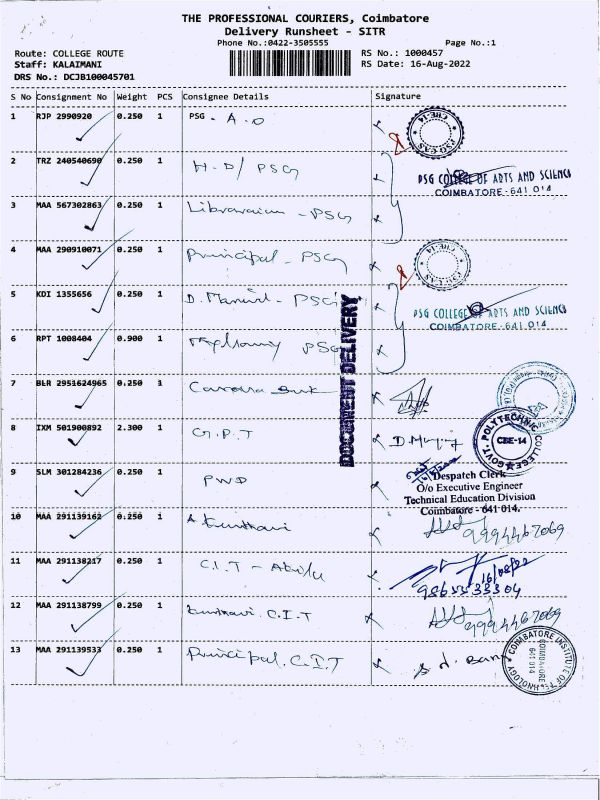 THE PROFESSIONAL COURIERS, Coimbatore
Delivery Runsheet - SITR
Phone No.:0422-3505555 Page No.:1
Route: COLLEGE ROUTE RS No.: 1000457
Staff: KALAIMANI RS Date: 16-Aug-2022
DRS No.: DCJB100045701
S No Consignment No Weight PCS Consignee Details Signature
1 RJP 2990920 0.250 1 PSG - A.O
PSG CAS CBE-14
2 TRZ 240540690 0.250 1 H.D/ PSG
PSG COLLEGE OF ARTS AND SCIENCE
COIMBATORE-641 014
3 MAA 567302863 0.250 1 Librarian - PSG
4 MAA 290910071 0.250 1 Principal - PSG
5 KDI 1355656 0.250 1 D. - PSG
PSG COLLEGE OF ARTS AND SCIENCE
COIMBATORE-641 014
6 RPT 1008404 0.900 1 PSG
DOCUMENT DELIVERY
7 BLR 2951624965 0.250 1
8 IXM 501900892 2.300 1 G.P.T
GOVT. POLYTECHNIC COLLEGE CBE-14
9 SLM 301284236 0.250 1 PWD
Despatch Clerk
O/o Executive Engineer
Technical Education Division
Coimbatore - 641 014.
10 MAA 291139162 0.250 1 9994467069
11 MAA 291138217 0.250 1 C.I.T - 16/08/22
9865533304
12 MAA 291138799 0.250 1 C.I.T 9994467069
13 MAA 291139533 0.250 1 Principal. C.I.T
COIMBATORE INSTITUTE OF TECHNOLOGY
COIMBATORE
641 014